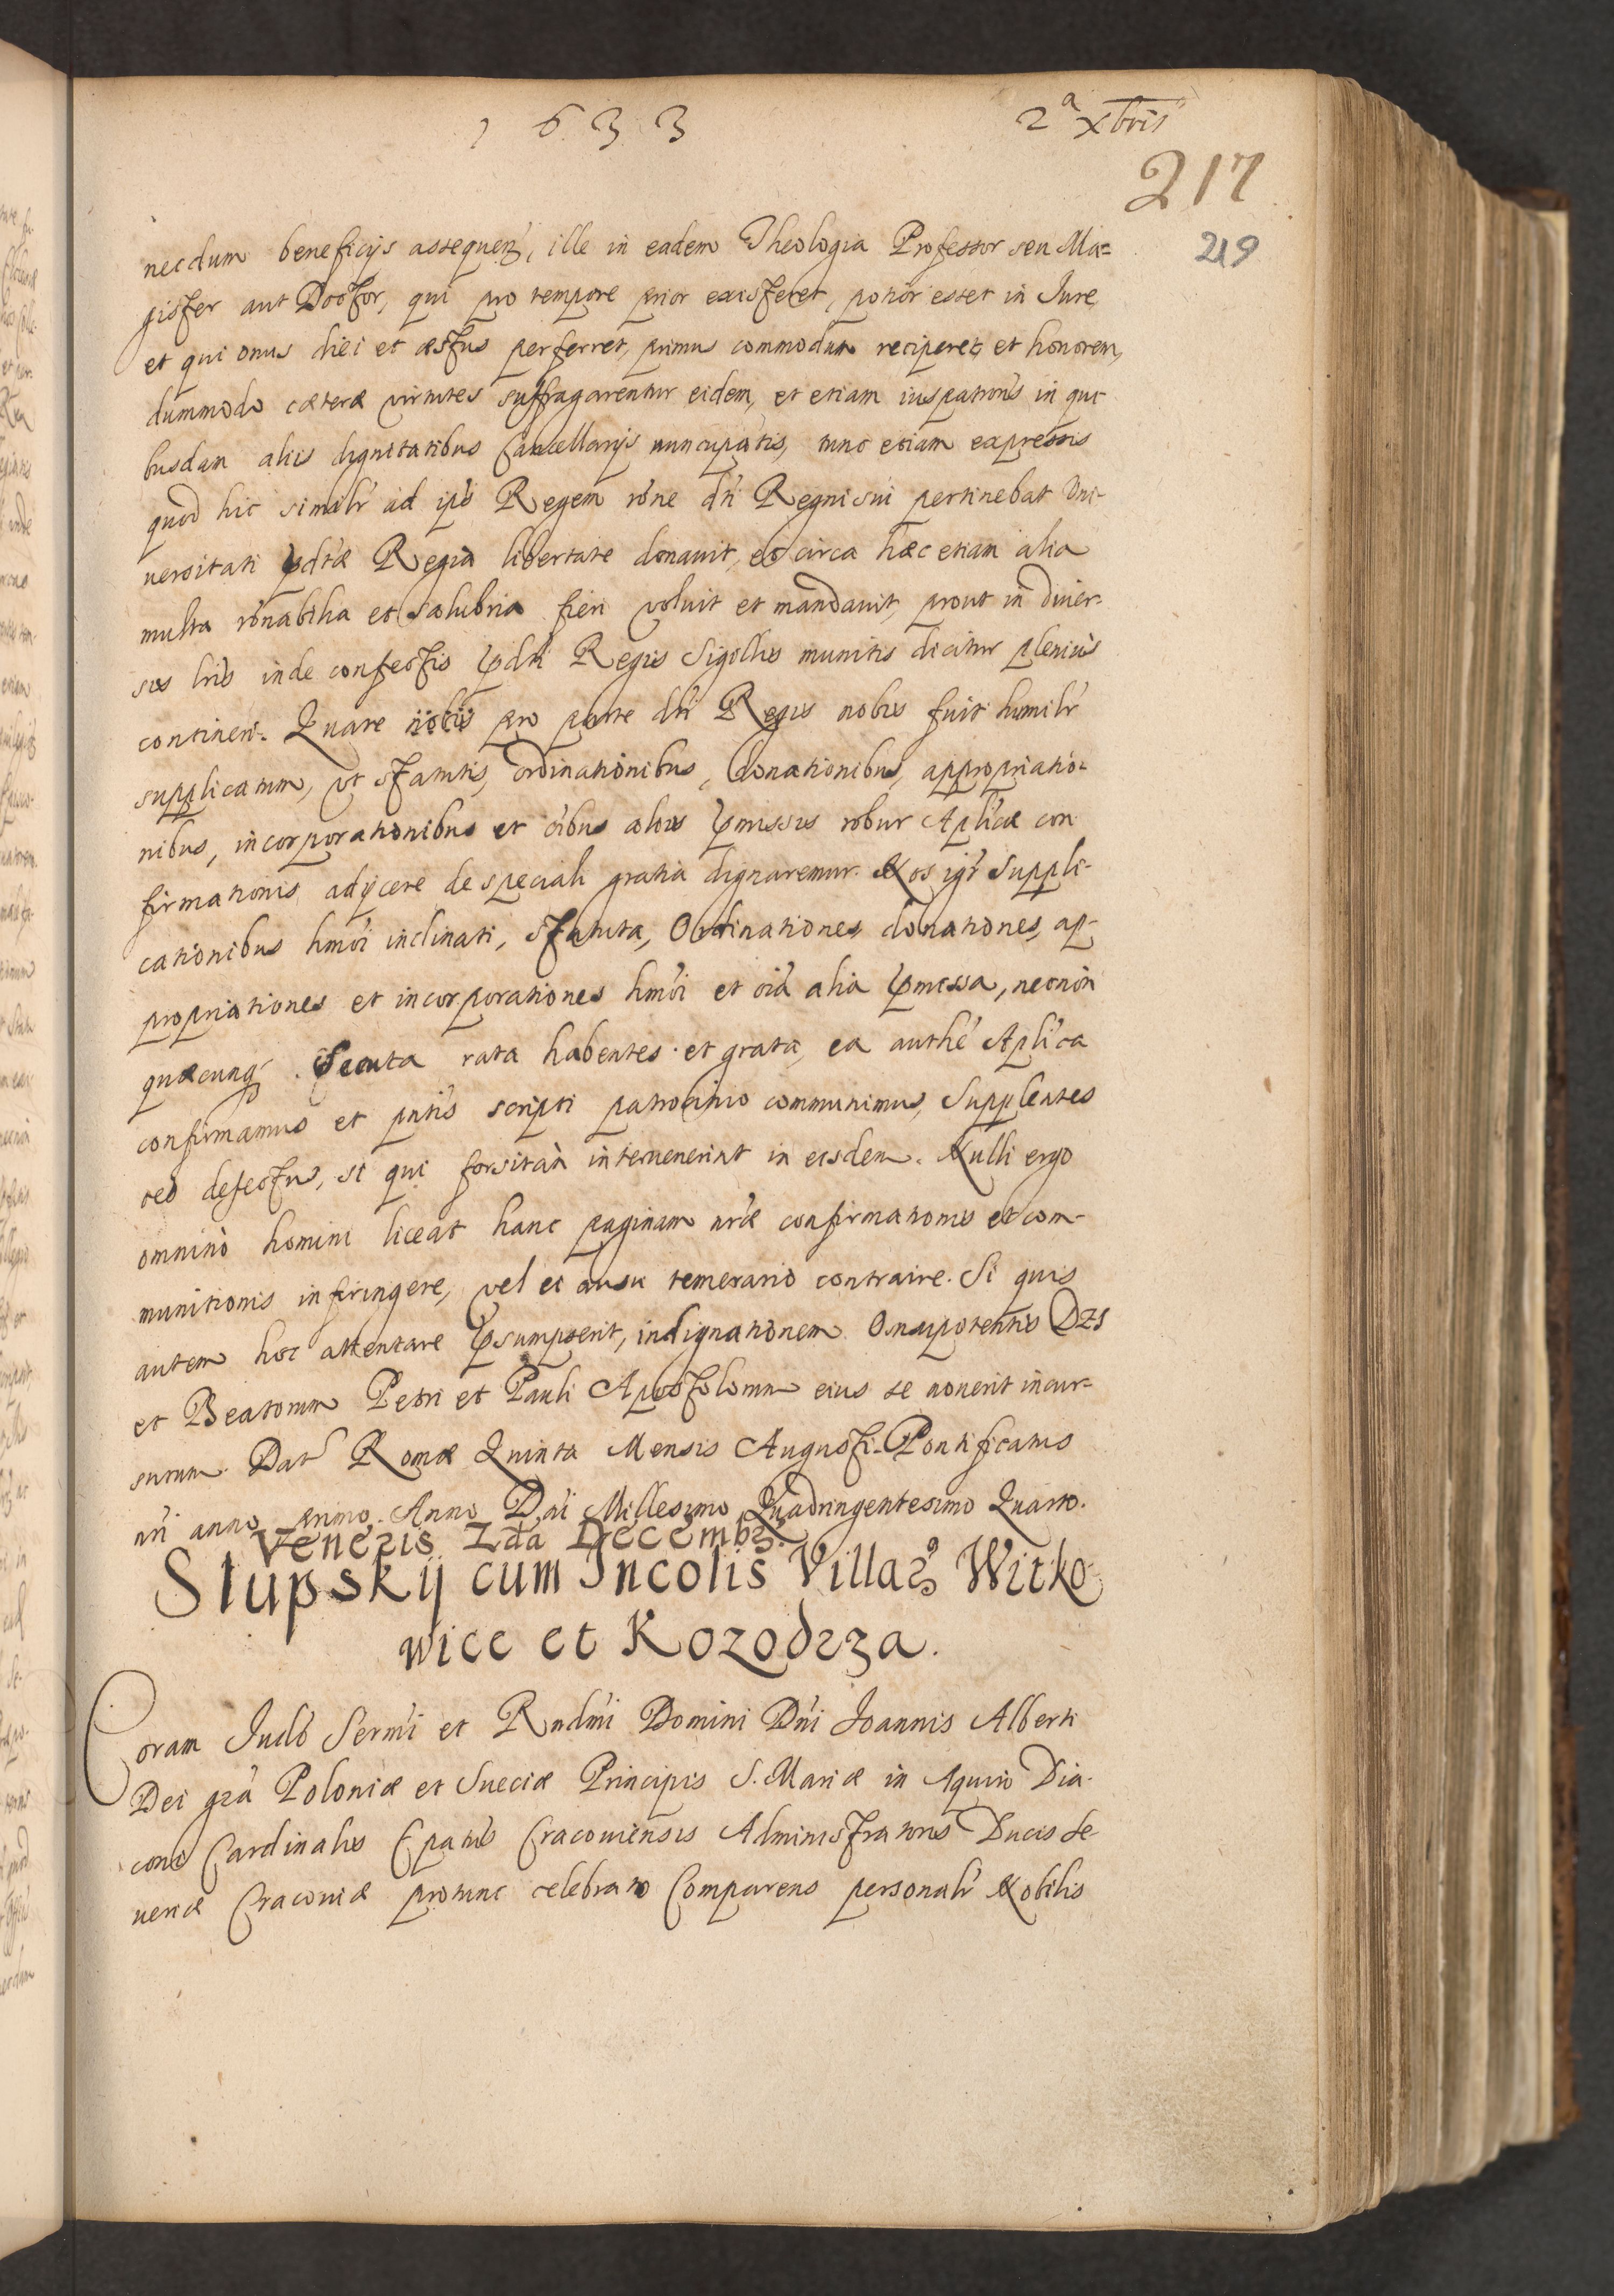 1633 2ª Xbris
217
219
necdum beneficijs assequen̄, ille in eadem Theologia Professor seu Ma=
gister aut Doctor, qui pro tempore prior existeret, potior esset in Jure,
et qui onus diei et æstus perferret, primus commodum reciperet et honorem,
dummodo cæteræ virtutes suffragarentur eidem, et etiam iuspatronûs in qui-
busdam alijs dignitatibus Cancellarijs nuncupatis, tunc etiam expressis
quod hic similr̃ ad ip̃m Regem rõne dti Regni sui pertinebat Uni-
versitati p̃dtæ Regia libertate donavit, et circa hæc etiam alia
multa rõnabilia et salubria fieri voluit et mandavit, prout in diver-
sis lris inde confectis p̃dti Regis Sigillis munitis dicitur plenius
contineri. Quare pro parte dti Regis nobis fuit humilr̃
supplicatum, ut statutis, ordinationibus, donationibus, appropriatio-
nibus, incorporationibus et oibus alijs p̃missis robur Aplicæ con-
firmationis adijcere de speciali gratia dignaremur. Nos igr̃ Suppli-
cationibus hmõi inclinati, statuta, Ordinationes, donationes, ap-
propriationes et incorporationes hmõi et oia alia p̃missa, necnon
quæcunq̃ secuta rata habentes et grata, ea authẽ Aplica
confirmamus et pntis scripti patrocinio communimus, Supplentes
oes defectus, si qui forsitan intervenerint in eisdem. Nulli ergo
omninò homini liceat hanc paginam nræ confirmationis et com-
munitionis infringere, vel ei ausu temerario contraire. Si quis
autem hoc attentare p̃sumpserit, indignationem Omnipotentis Dei
et Beatorum Petri et Pauli Apostolorum eius se noverit incur-
surum. Dat̃ Romæ Quinta Mensis Augusti Pontificatus
nri anno primo. Anno Dñi Millesimo Quadringentesimo Quarto.
Veneris 2da Decembr̃.
Słupskij cum Incolis Villarũ Witko-
wice et Kozodrza.
Coram Judõ Sermi et Rndmi Domini Dñi Joannis Alberti
Dei gra Poloniæ et Sueciæ Principis S. Mariæ in Aquiro Dia-
coni Cardinalis Epatus Cracoviensis Administratoris Ducis Se-
veriæ Cracoviæ protunc celebrato Comparens personalr̃ Nobilis